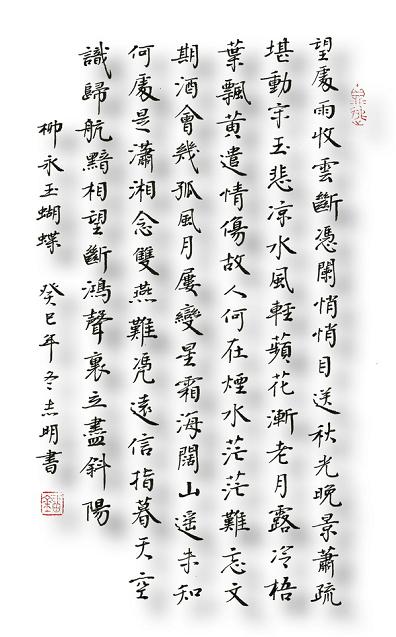 望處雨收雲斷憑闌悄悄目送秋光晚景蕭疏
堪動宋玉悲凉水風輕蘋花漸老月露冷梧
葉飄黃遣情傷故人何在煙水茫茫難忘文
期酒會幾孤風月屢變星霜海闊山遥未知
何處是瀟湘念雙燕難凭遠信指暮天空
識歸航黯相望斷鴻聲裏立盡斜陽
柳永玉蝴蝶 癸巳年冬志明書